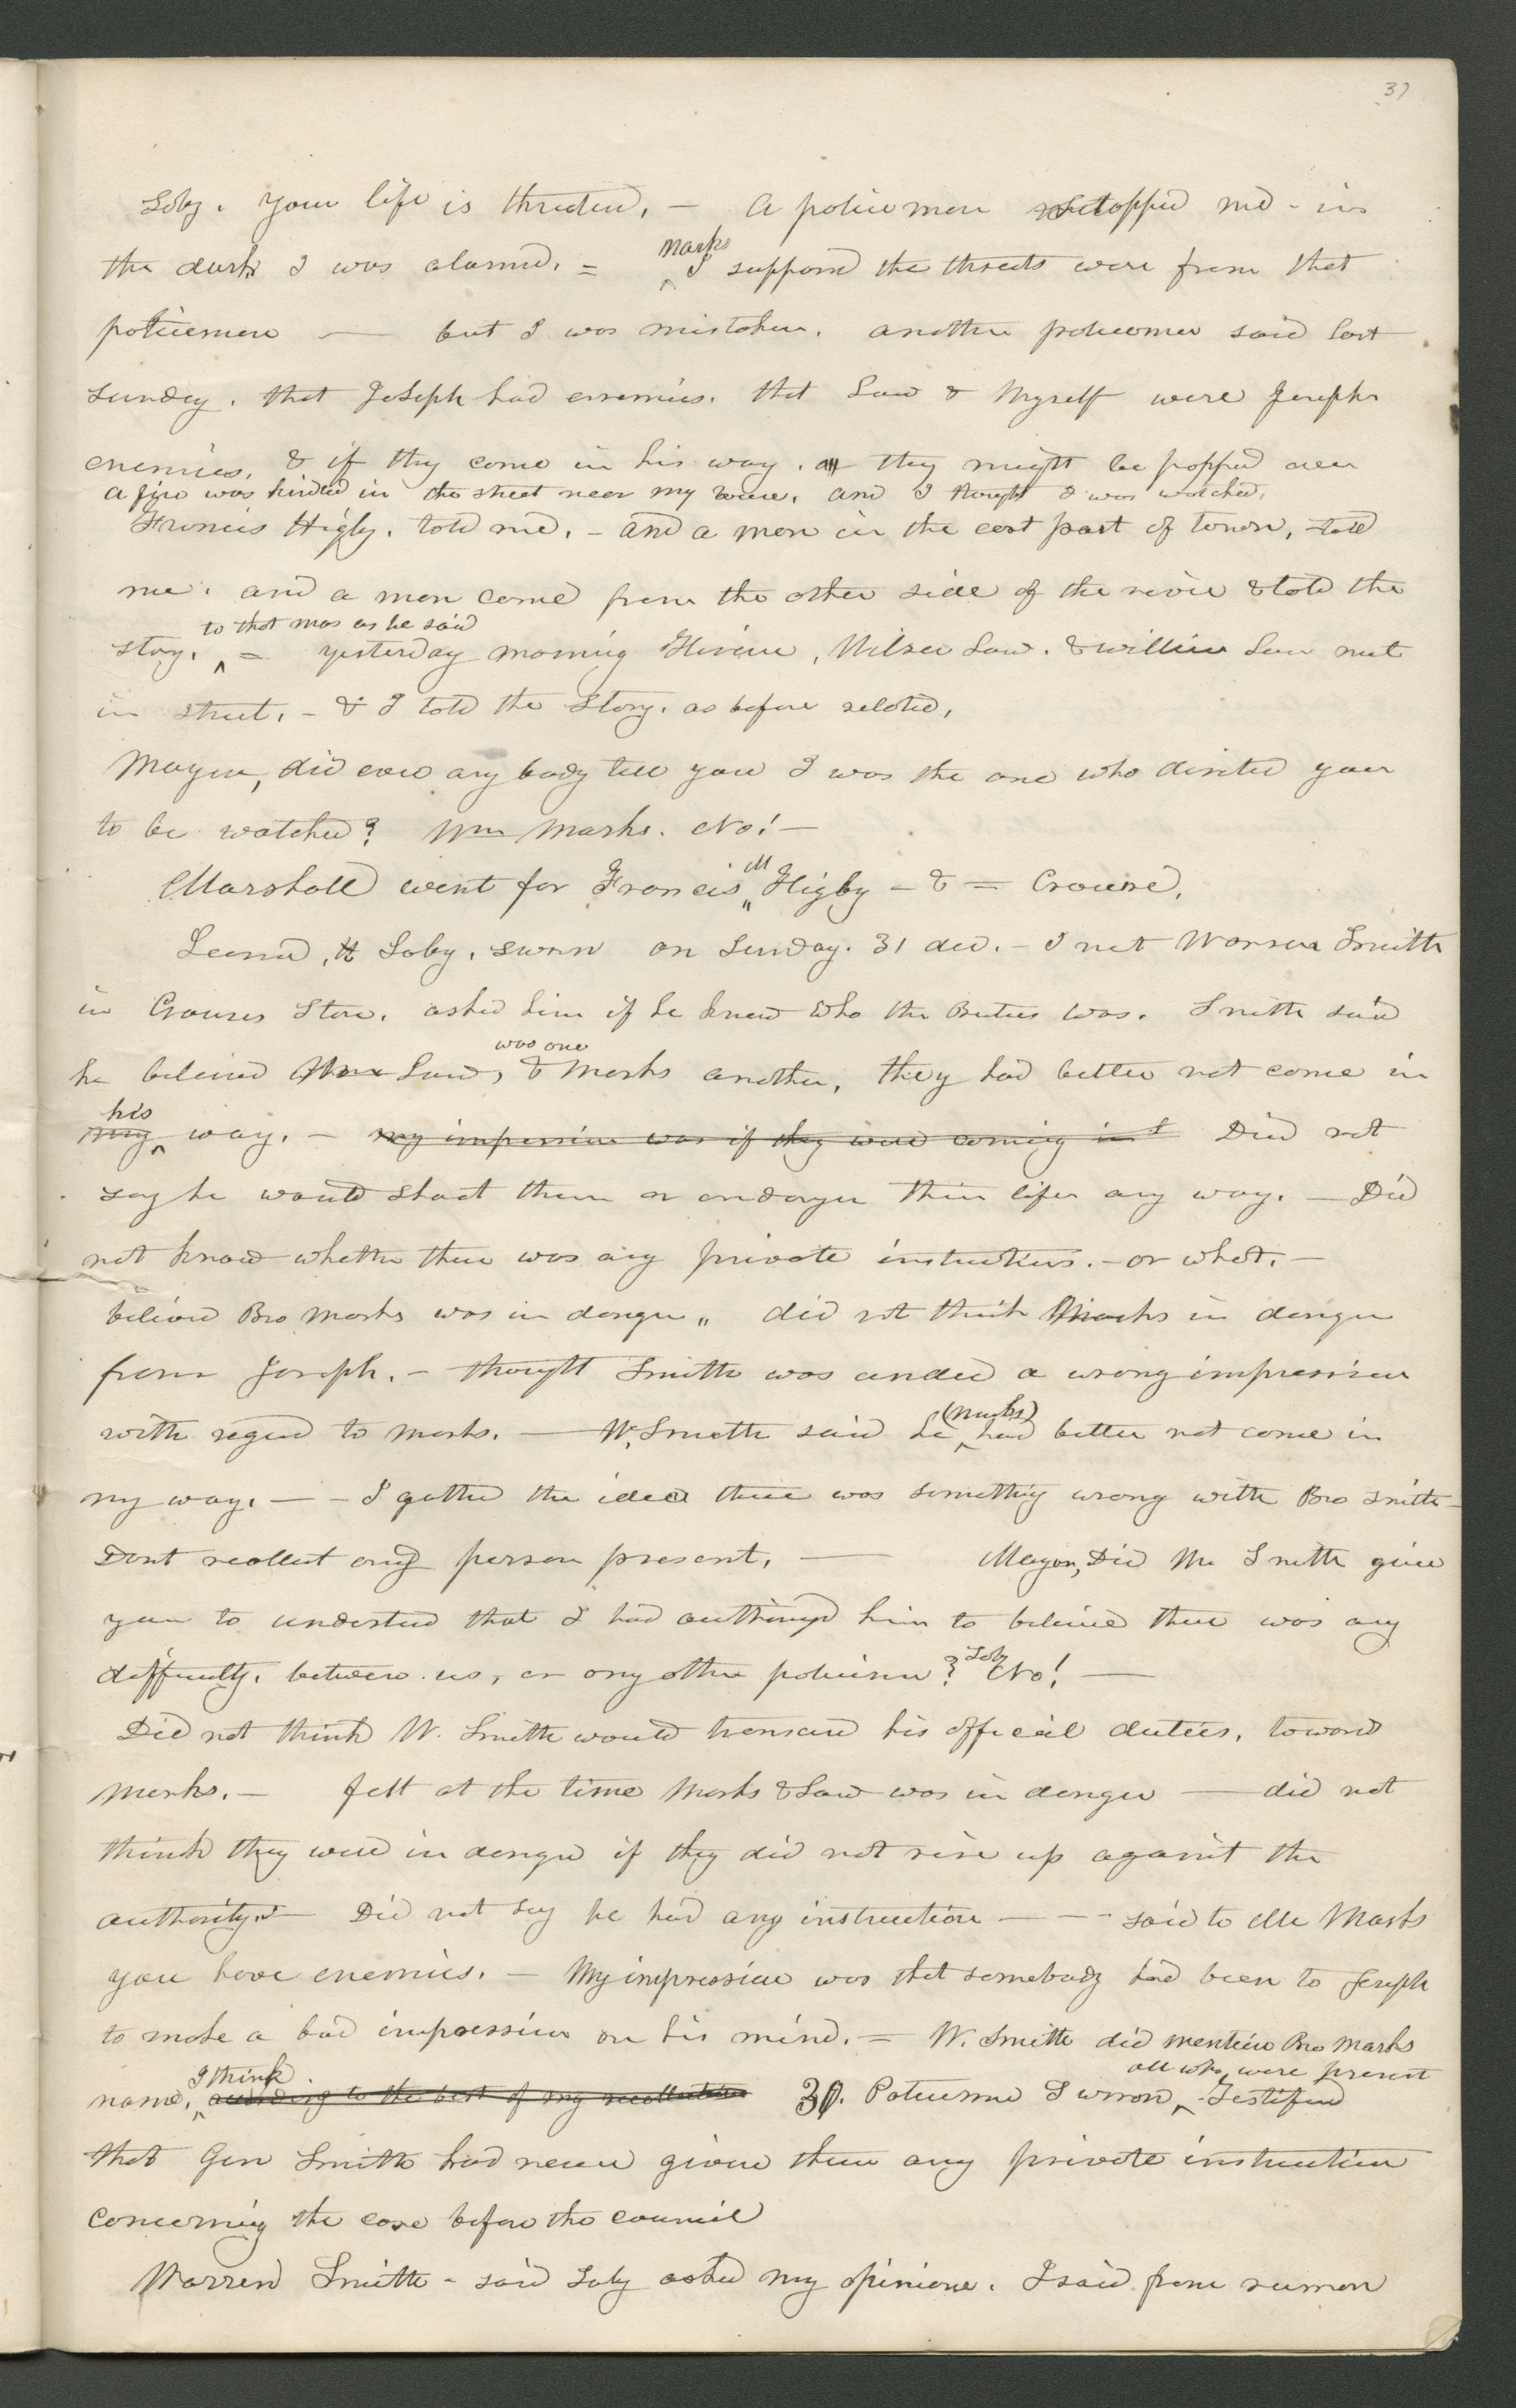 37
Soby. your life is threten, — A policeman stopped me - in
the dark I was alarmd. = Marks
I supposd the threats were from that
policemen — but I was mistaken. another policeman said last
sunday. that Joseph had enemies. that Law & Myself were Josephs
enemies, & if they come in his way. they might be popped over
A fire was kindled in the street near my house, and I thought I was watched.
Francis Higby. told me. - and a man in the east part of town, told
me. and a man came from the other side of the river & told the
to that mas as he said
story. ^ = yesterday morning Hiram, Wilson Law. & william Law met
in street. - & I told the Story. as before related,
Mayor, did ever any body tell you I was the one who directed you
to be watched? Wm Marks. No! —
M
Marshall went for Francis Higby - & = Crouse.
Leonad, H Soby. sworn on Sunday. 31 dec. - I met Warren Smith
in Crouses Store. asked him if he knew who the Brutus was. Smith said
was one
he believed Wm Law, & Marks another, they had better not come in
his
my ^ way. - my impression was if they were coming in t Did not
say he would shoot them or endanger their lifes any way. — Did
not know whether there was any private instructions. - or what. -
believd Bro Marks was in danger „ did not think Marks in danger
from Joseph. - thought Smith was under a wrong impression
(Marks)
with regard to Marks. — W. Smith said he ^ had better not come in
my way. — - I gatherd the idea there was something wrong with Bro Smith -
Dont recollect any person present, — Mayor, Did Mr Smith give
you to understand that I had authorizd him to believe there was any
difficulty. between us, or any other policeman? Soby No! —
Did not think W. Smith would transcend his official duties, toward
Marks. - felt at the time Marks & Law was in danger — did not
think they were in danger if they did not rise up against the
authority. — Did not say he had any instruction — - - said to Mr Marks
you have enemies. - My impression was that somebody had been to Joseph
to make a bad impression on his mind. = W. Smith did mention Bro Marks
I think. all who were present
name, ^ according to the best of my recollection 30. Policeme Sworon, ^ Testified
that Gen Smith had never given them any private instruction
concerning the case before the council
Warren Smith - said Soby asked my opinione. I said from rumor